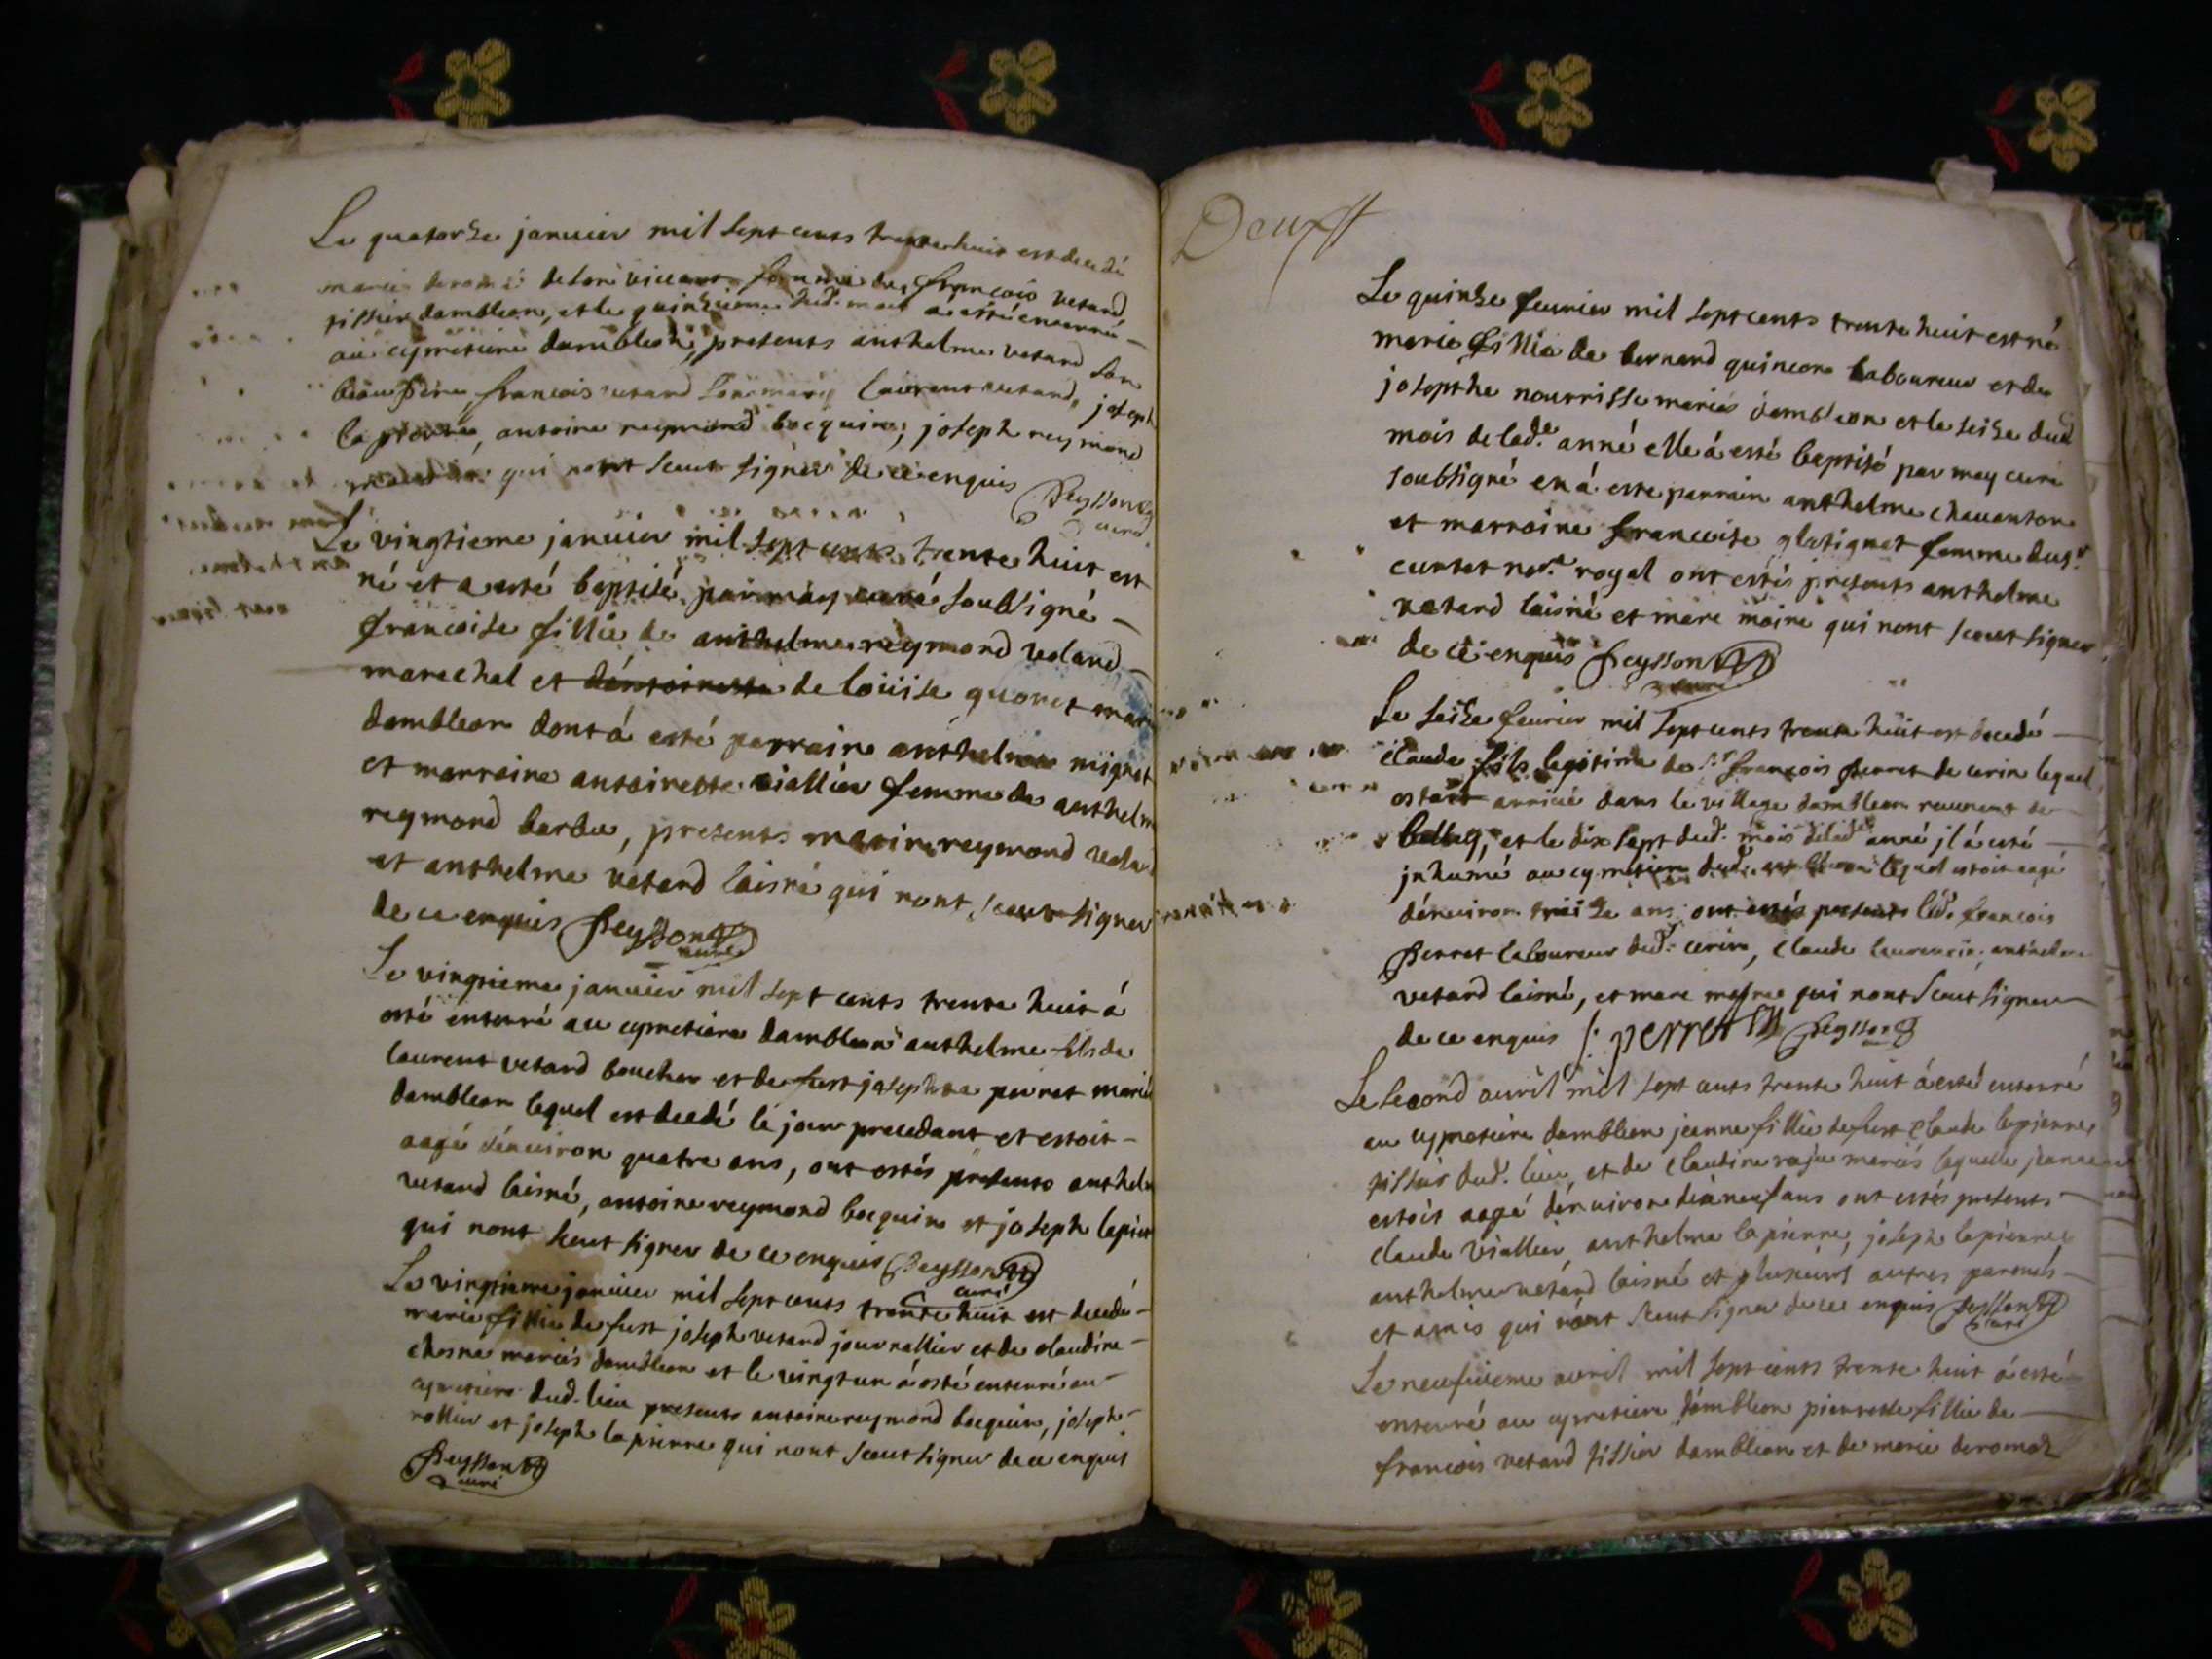 Le quatorze januier mil sept cents trente huit est decedé
marie deromaz de son viuant femme de francois vetard
tissier dambleon, et le quinzieme dud. mois a esté enterré
au cymetiere dambleon, presents anthelme vetard son
beau pere francois vetard son mary laurent vetard, joseph
la pierre, antoine reymond bocquin, joseph reymond
qui nont sceut signer de ce enquis Peysson
curé
Le vingtieme januier mil sept cents trente huit est
né et a esté baptisé par moy curé soubsigné
francoise fillie de anthelme reymond vedard
marechal et de loüise quoret mariés
dambleon dont á esté parrain anthelme mignet
et marraine antoinette viallier femme de anthelme
reymond barbu, presents marin reymond
et anthelme vetard laisné qui nont sceut signer
de ce enquis Peysson
curé
Le vingtieme januier mil sept cents trente huit á
esté enterré au cymetiere dambleon anthelme fils de
laurent vetard boucher et de fust josephte perret mariés
dambleon lequel est decedé le jour precedant et estoit
aagé dénuiron quatre ans, ont estés presents anthelme
vetard laisné, antoine reymond bocquin et joseph lapierre
qui nont sceut signer de ce enquis Peysson
curé
Le vingtieme januier mil sept cents trente huit est decedé
marie fillie de fust joseph vetard journallier et de claudine
chesne mariés dambleon et le vingt un á esté enterré au
cymetiere dud. lieu presents antoine reymond bocquin, joseph
rallier et joseph la pierre qui nont sceut signer de ce enquis
Peysson
curé
Deux
Le quinze feurier mil sept cents trente huit est né
marie fillie de bernard quincon laboureur et de
josepthe nourrisse mariés dambleon et le seize dud
mois de lad.e anné elle á esté baptisé par moy curé
soubsigné en á esté parrain anthelme chauanton
et marraine francoise glatignat femme du s.r
curtet no.re royal ont estés presents anthelme
vetard laisné et marc moine qui nont sceut signer
de ce enquis Peysson
curé
Le seize feurier mil sept cents trente huit est decedé
claude fils legitime de s.r françois Perret de cerin lequel
estant arriué dans le village dambleon reuenent de
belley, et le dix sept dud. mois de lad.e anné jl á esté
jnhumé au cymetiere dud. ambleon lequel estoit aagé
dénuiron treize ans ont estés presents led. francois
Perret laboureur dud. cerin, claude laurencin, anthelme
vetard laisné, et marc moine qui nont sceut signer
de ce enquis f: perret Peysson
Le second auril mil sept cents trente huit á esté enterré
au cymetiere dambleon jeanne fillie de fust claude lapierre
tissier dud. lieu, et de claudine mariés laquelle jeanne
estoit aagé dénuiron dixneuf ans ont estés presents
claude Viallier, anthelme la pierre, joseph lapierre
anthelme vetard laisné et plusieurs autres parents
et amis qui nont sceut signer de ce enquis Peysson
curé
Le neufuieme auril mil sept cents trente huit á esté
enterré au cymetiere dambleon pierrette fillie de
francois vetard tissier dambleon et de marie deromaz